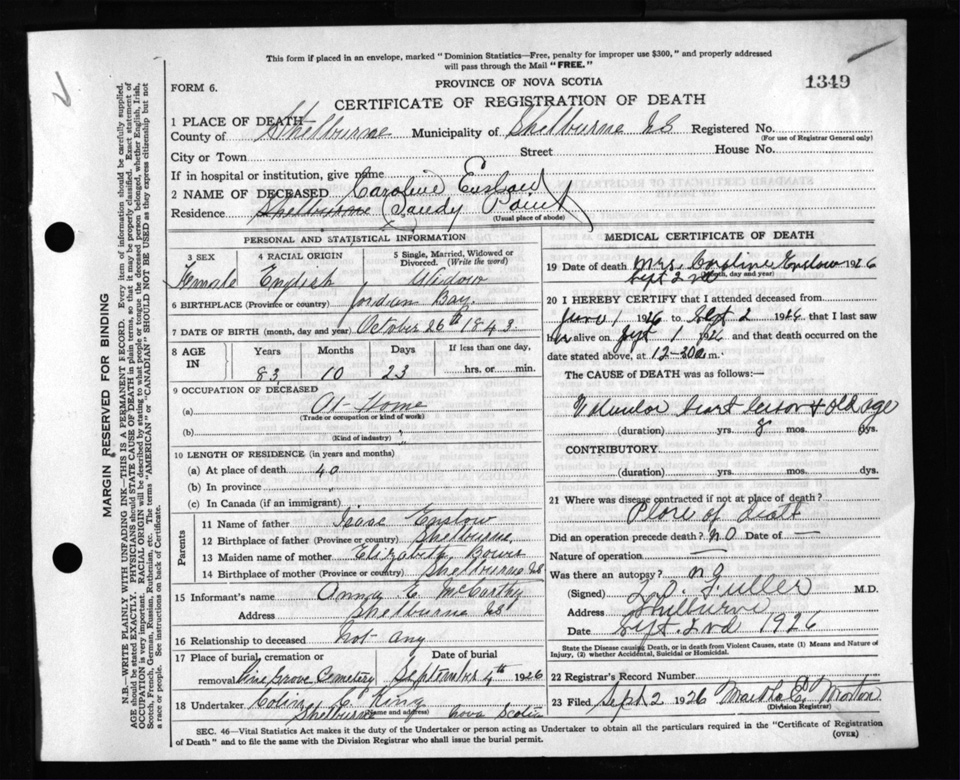 This form if placed in an envelope, marked "Dominion Statistics—Free, penalty for improper use $300," and properly addressed
will pass through the Mail "FREE."
FORM 6.
PROVINCE OF NOVA SCOTIA
1349
CERTIFICATE OF REGISTRATION OF DEATH
1 PLACE OF DEATH
County of Shelburne Municipality of Shelburne NS Registered No.
(For use of Registrar General only)
City or Town Street House No.
If in hospital or institution, give name
2 NAME OF DECEASED Caroline Enslow
Residence Shelburne Sandy Point
(Usual place of abode)
PERSONAL AND STATISTICAL INFORMATION
3 SEX 4 RACIAL ORIGIN 5 Single, Married, Widowed or Divorced. (Write the word)
Female English Widow
6 BIRTHPLACE (Province or country) Jordan Bay
7 DATE OF BIRTH (month, day and year) October 26th 1843.
8 AGE IN Years Months Days If less than one day,
83 10 23 hrs. or min.
9 OCCUPATION OF DECEASED
(a) At Home
(Trade or occupation or kind of work)
(b)
(Kind of industry)
10 LENGTH OF RESIDENCE (in years and months)
(a) At place of death 40
(b) In province
(c) In Canada (if an immigrant)
Parents
11 Name of father Isaac Enslow
12 Birthplace of father (Province or country) Shelburne
13 Maiden name of mother Elizabeth Bower
14 Birthplace of mother (Province or country) Shelburne NS
15 Informant's name Anna C. McCarthy
Address Shelburne NS
16 Relationship to deceased not any
17 Place of burial, cremation or Date of burial
removal Pine Grove Cemetery September 4th 1926
18 Undertaker Colin C. King
(Name and address)
Shelburne Nova Scotia
MEDICAL CERTIFICATE OF DEATH
19 Date of death Mrs. Caroline Enslow 1926
Sept 2nd
(Month, day and year)
20 I HEREBY CERTIFY that I attended deceased from
June 1 1926 to Sept 2 1926 that I last saw
her alive on Sept 1 1926 and that death occurred on the
date stated above, at 12-30 a m.
The CAUSE OF DEATH was as follows:—
Valvular heart lesion & old age
(duration) yrs. mos. dys.
CONTRIBUTORY
(duration) yrs. mos. dys.
21 Where was disease contracted if not at place of death?
Place of death
Did an operation precede death? NO Date of —
Nature of operation —
Was there an autopsy? no
(Signed) Fuller M.D.
Address Shelburne
Date Sept 2nd 1926
State the Disease causing Death, or in death from Violent Causes, state (1) Means and Nature of
Injury, (2) whether Accidental, Suicidal or Homicidal.
22 Registrar's Record Number
23 Filed Sept 2 1926 Martha E. Morton
(Division Registrar)
SEC. 46—Vital Statistics Act makes it the duty of the Undertaker or person acting as Undertaker to obtain all the particulars required in the "Certificate of Registration
of Death" and to file the same with the Division Registrar who shall issue the burial permit.
(OVER)
MARGIN RESERVED FOR BINDING
N.B.—WRITE PLAINLY WITH UNFADING INK—THIS IS A PERMANENT RECORD. Every item of information should be carefully supplied.
AGE should be stated EXACTLY. PHYSICIANS should STATE CAUSE OF DEATH in plain terms, so that it may be properly classified. Exact statement of
OCCUPATION is very important. RACIAL ORIGIN will be described by stating to what people or tongue the deceased person belonged, whether English, Irish,
Scotch, French, German, Russian, Ruthenian, etc. The terms "AMERICAN" or "CANADIAN" SHOULD NOT BE USED as they express citizenship but not
a race or people. See instructions on back of Certificate.